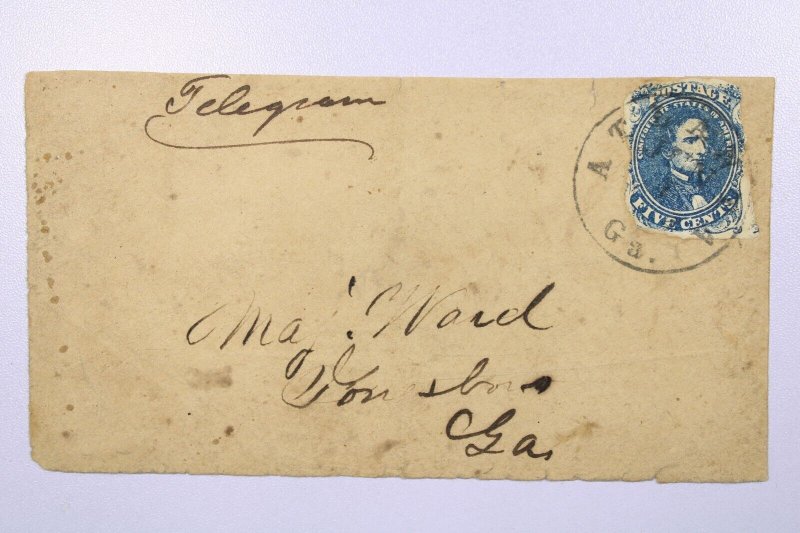 Telegram
POSTAGE
CONFEDERATE STATES OF AMERICA
FIVE CENTS
ATLANTA
Ga.
Maj. Ward
Jonesboro
Ga.